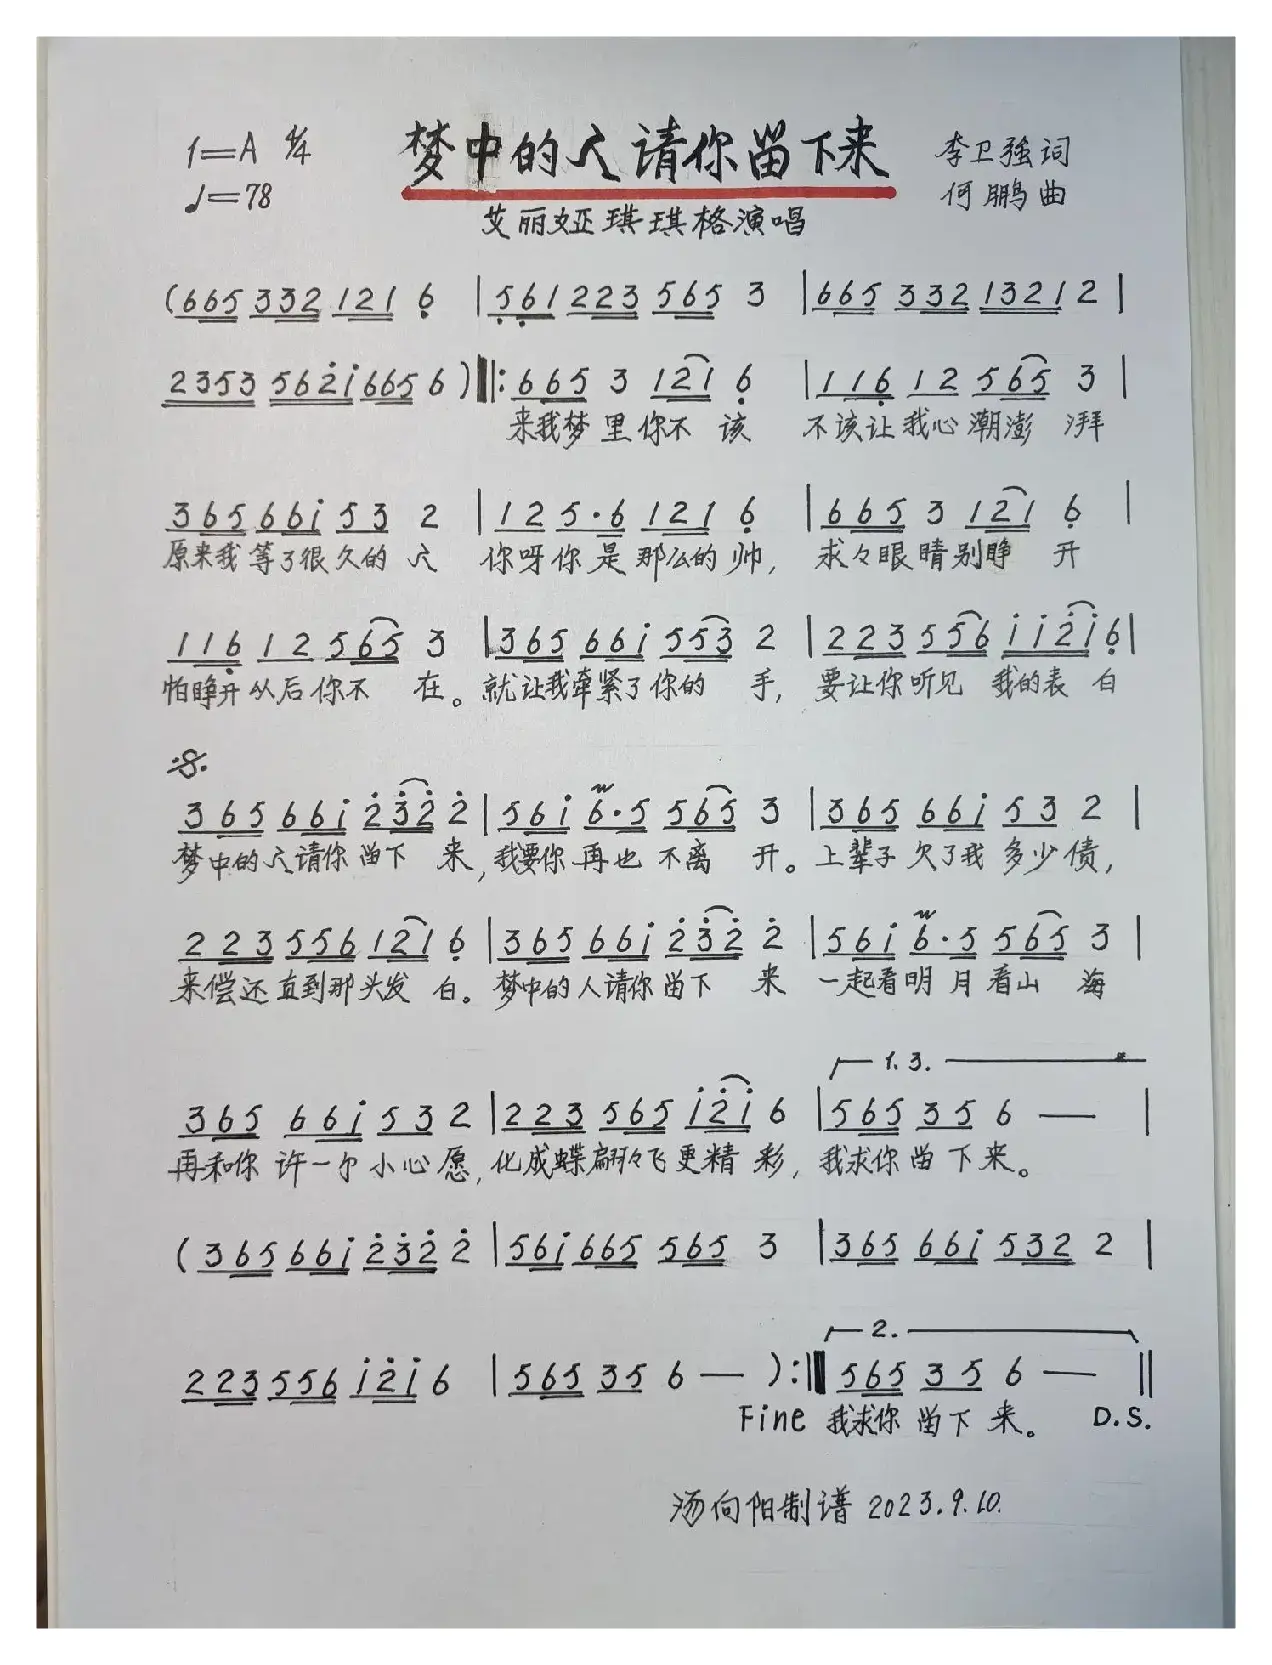 1=A 4/4 梦中的人请你留下来 李卫强词
♩=78 何鹏曲
艾丽娅琪琪格演唱
(665 332 121 6̣ | 5̣6̣1 223 565 3 | 665 332 1321 2 |
2353 562̇1̇ 665 6 )‖: 665 3 121 6̣ | 116̣ 12 565 3 |
来我梦里你不该 不该让我心潮澎湃
365 661̇ 53 2 | 12 5·6 121 6̣ | 665 3 121 6̣ |
原来我等了很久的人 你呀你是那么的帅, 求々眼睛别睁开
116̣ 12 565 3 | 365 661̇ 553 2 | 223 556 1̇1̇2̇1̇ 6̣ |
怕睁开从后你不在。就让我牵紧了你的手, 要让你听见 我的表白
365 661̇ 2̇3̇2̇ 2̇ | 561̇ 6·5 565 3 | 365 661̇ 53 2 |
梦中的人请你留下来, 我要你再也不离开。上辈子欠了我多少债,
223 556 121 6̣ | 365 661̇ 2̇3̇2̇ 2̇ | 561̇ 6·5 565 3 |
来偿还直到那头发白。梦中的人请你留下来 一起看明月看山海
1.3.
365 661̇ 53 2 | 223 565 1̇2̇1̇ 6 | 565 35 6 — |
再和你许一个小心愿, 化成蝶翩々飞更精彩, 我求你留下来。
(365 661̇ 2̇3̇2̇ 2̇ | 561̇ 665 565 3 | 365 661̇ 532 2 |
2.
223 556 1̇2̇1̇ 6 | 565 35 6 — ):‖ 565 35 6 — ‖
Fine 我求你留下来。 D.S.
汤向阳制谱 2023.9.10.